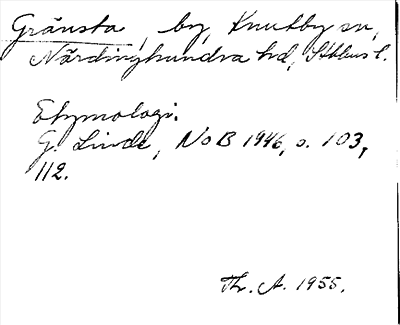 Gränsta, by, Knutby sn,
Närdinghundra hd, Sthlms l.
Etymologi.
G. Linde, NoB 1946, s. 103,
112.
Th. A. 1955.